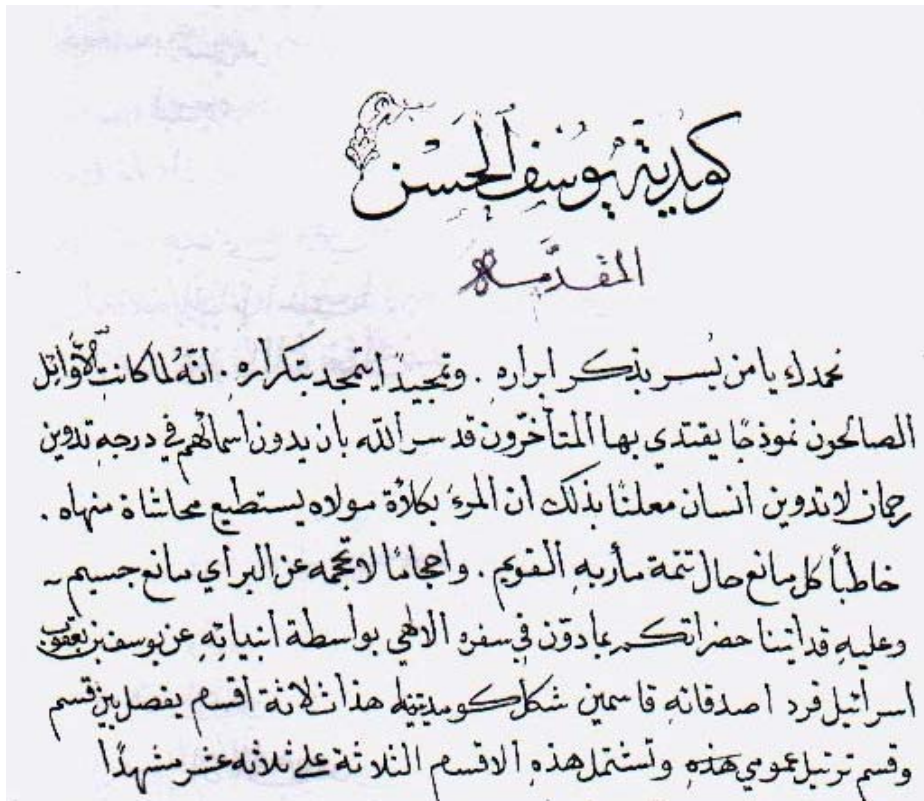 كوميدية يوسف الحسن
المقدمة
نحمدك يا من يُسر بذكر ابراره . وتمجيداً يتمجد بتكراره انهُ لما كانت الأوائل
الصالحون نموذجًا يقتدي بها المتأخرون قد سر الله بان يدون اسمائهم في درجه تدوين
رحمان لا تدوين انسان معلنًا بذلك أن المرء بكلأة مولاه يستطيع محاشاة منهاه .
خاطباً كل مانع حال تتمة مأربهِ القويم . واحجامًا لا تحجمه عن البر أي مانع جسيم -
وعليهِ قد أتينا حضراتكم بما دوّن في سفره الالاهي بواسطة أنبيائهِ عن يوسف بن يعقوب
اسرائيل فرد اصدقائهِ قاسمين شكل كوميديته هذا ثلاثة أقسام يفصل بين قسم
وقسم ترتيل عمومي هذه وتشتمل هذهِ الاقسام الثلاثة على ثلاثه عشر مشهدًا